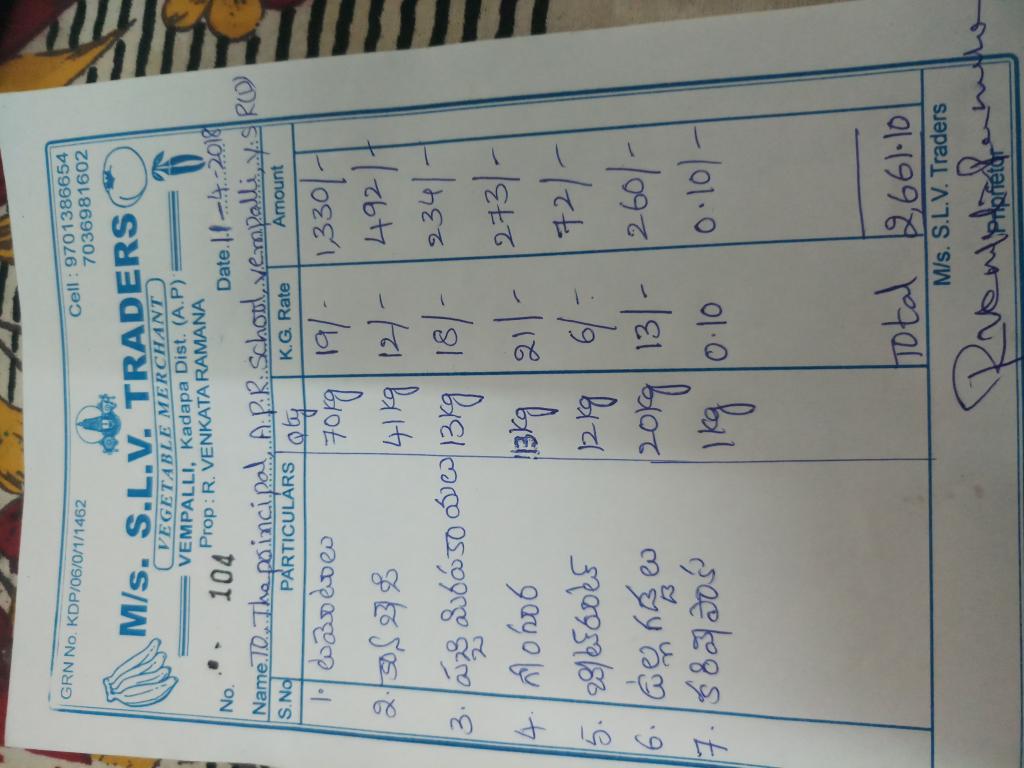 GRN No. KDP/06/0/1/1462 Cell : 9701388654
7036981602
M/s. S.L.V. TRADERS
VEGETABLE MERCHANT
VEMPALLI, Kadapa Dist. (A.P)
Prop : R. VENKATARAMANA
No. 104 Date 11-4-2018
Name To. Thaprincipal A.P.R. School. Vempalli, Y.S.R(D)
S.No PARTICULARS Qty K.G. Rate Amount
1. టమాటాలు 70kg 19/- 1,330/-
2. 41kg 12/- 492/-
3. పచ్చిమిరపకాయలు 13kg 18/- 234/-
4. గోంగూర 13kg 21/- 273/-
5. బీట్రూట్ 12kg 6/- 72/-
6. ఉల్లగడ్డలు 20kg 13/- 260/-
7. కరివేపాకు 1kg 0.10 0.10/-
Total 2,661.10
M/s. S.L.V. Traders
Proprietor